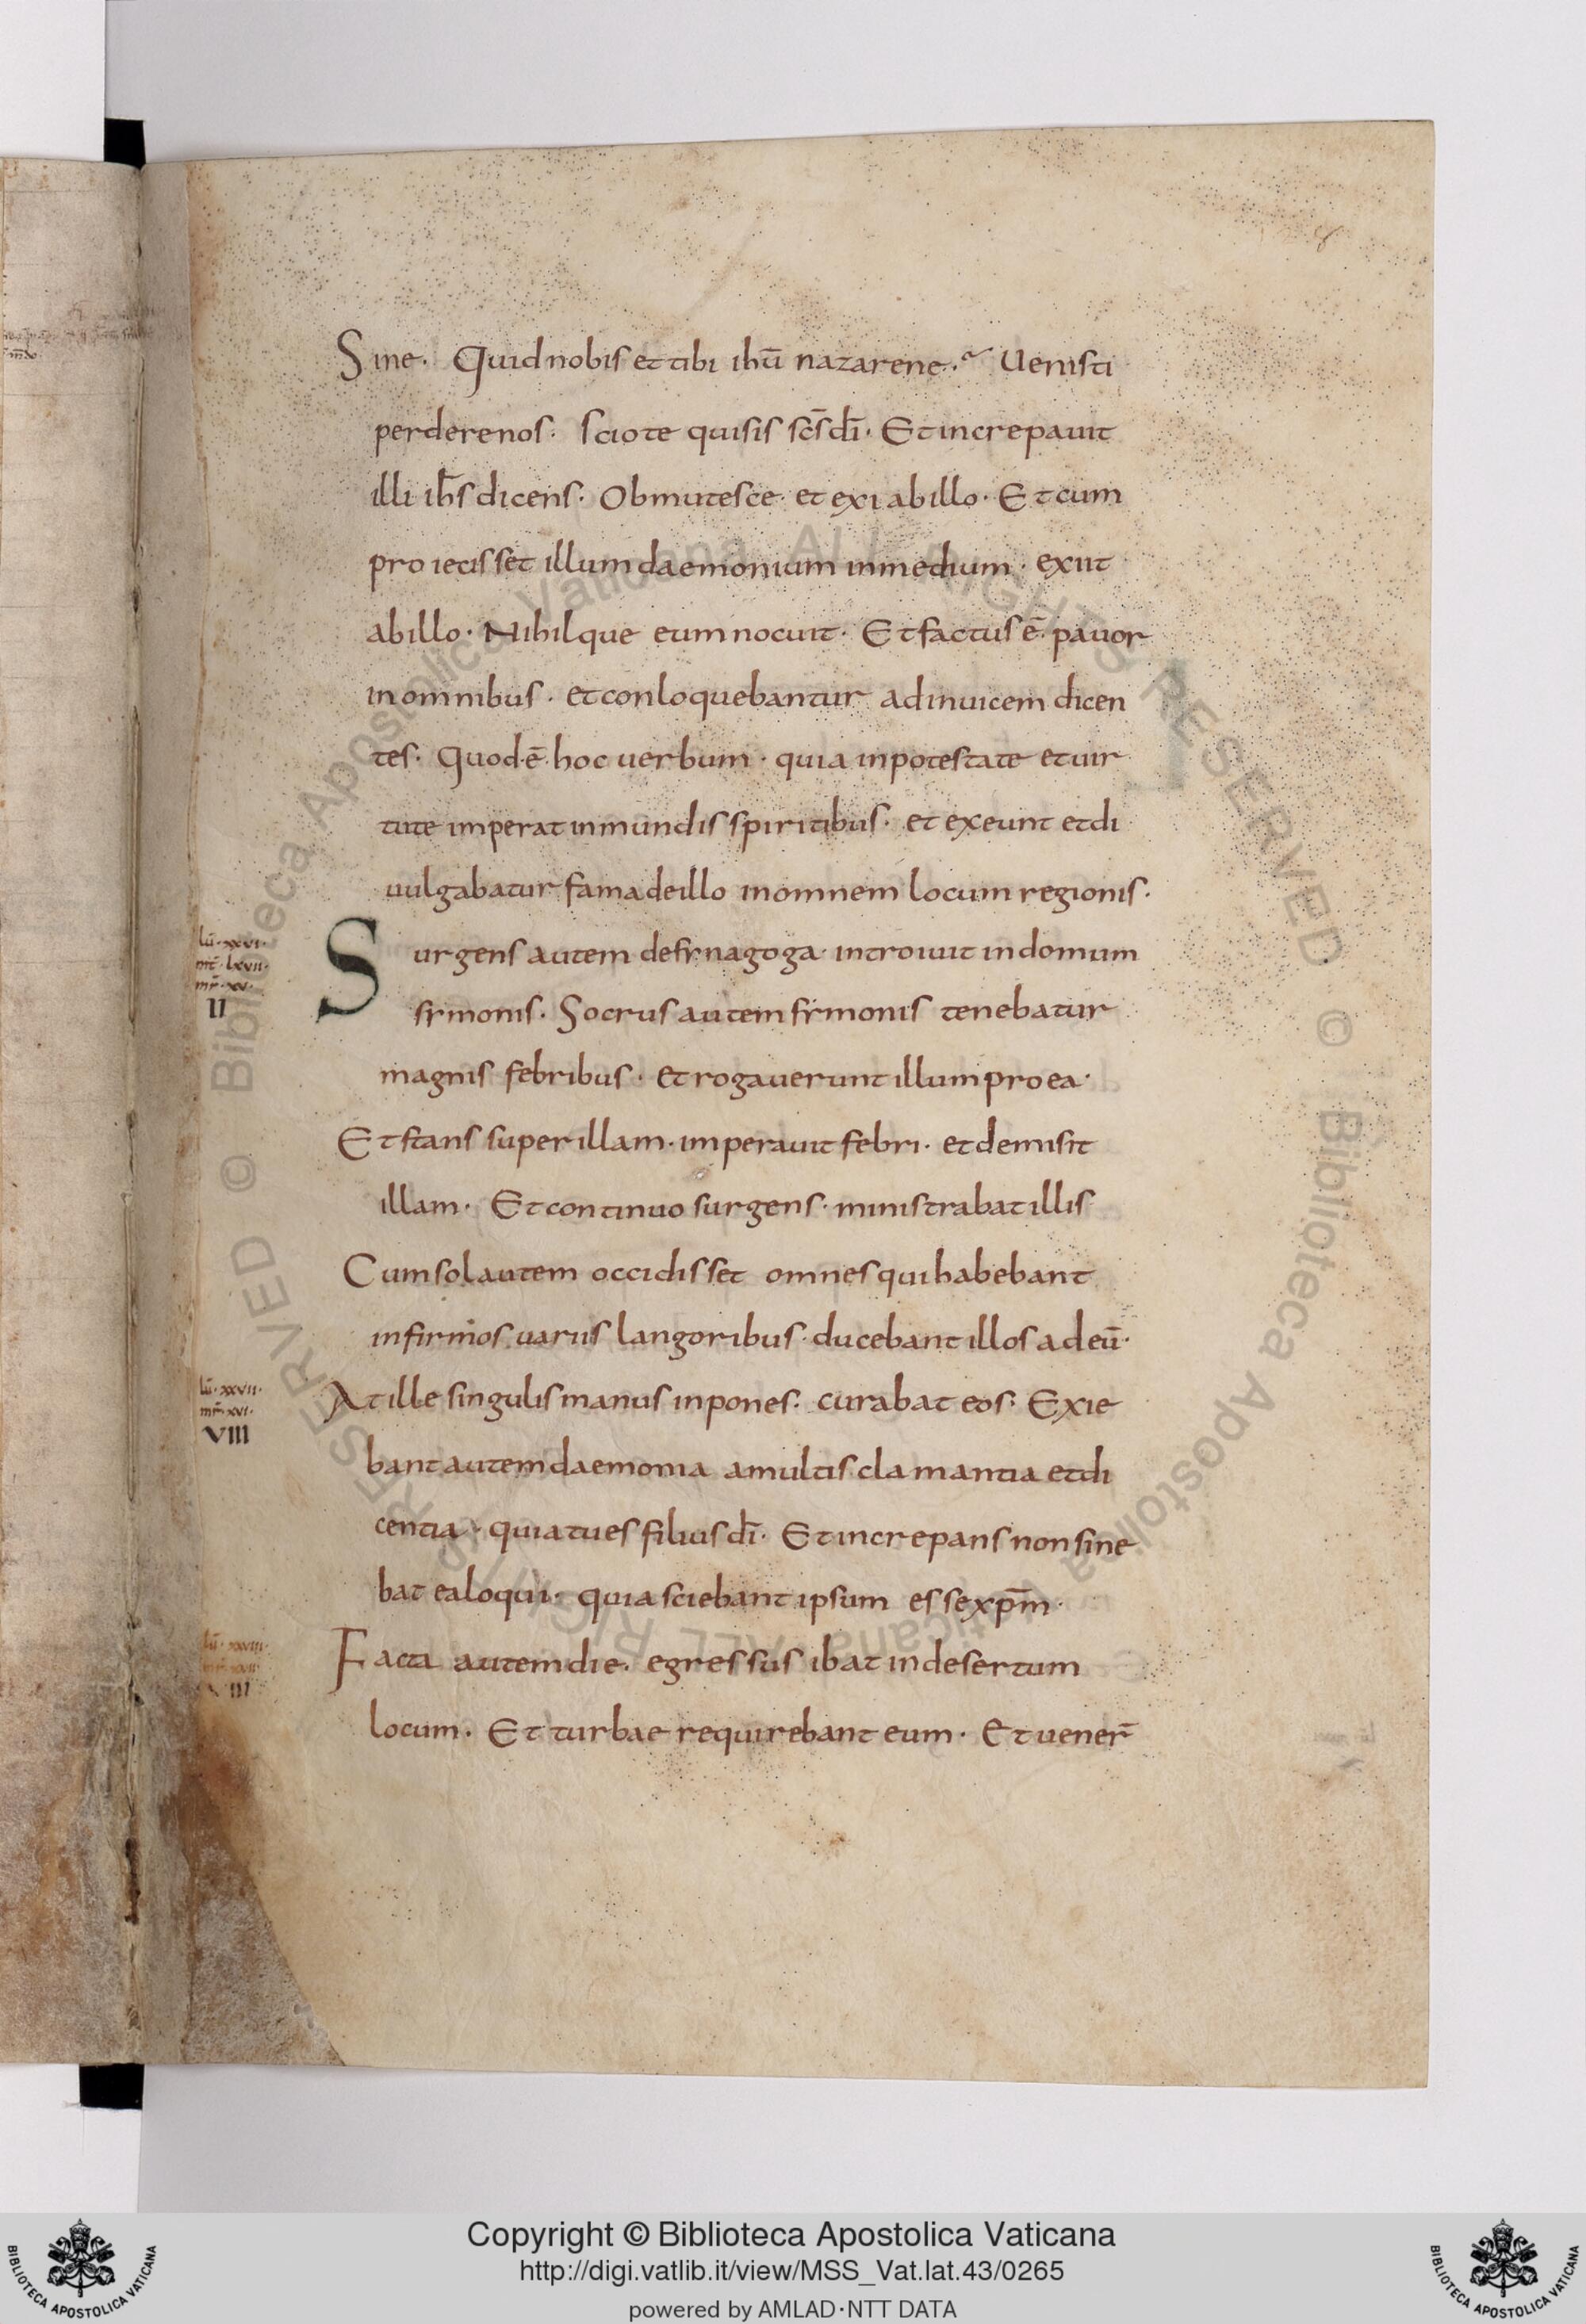 Sine. Quid nobis et tibi ihū nazarene. Uenisti
perdere nos. scio te qui sis scs̄ dī. Et increpauit
illi ihs̄ dicens. Obmutesce. et exi ab illo. Et cum
proiecisset illum daemonium in medium. exiit
ab illo. Nihilque eum nocuit. Et factus ē pauor
in omnibus. et conloquebantur ad inuicem dicen
tes. Quod ē hoc uerbum. quia in potestate et uir
tute imperat inmundis spiritibus. et exeunt et di
uulgabatur fama de illo in omnem locum regionis.
lū. xxvi.
mt̄. lxvii.
mr̄. xv.
II
Surgens autem de synagoga. introiuit in domum
symonis. Socrus autem symonis tenebatur
magnis febribus. et rogauerunt illum pro ea.
Et stans super illam. imperauit febri. et demisit
illam. Et continuo surgens. ministrabat illis
Cum sol autem occidisset omnes qui habebant
infirmos uariis langoribus. ducebant illos ad eū.
lū. xxvii.
mr̄. xvi.
VIII
At ille singulis manus inpones. curabat eos. Exie
bant autem daemonia a multis clamantia et di
centia. quia tu es filius dī. Et increpans non sine
bat ea loqui. quia sciebant ipsum esse xpm̄.
lū. xxviii.
Facta autem die. egressus ibat in desertum
locum. Et turbae requirebant eum. Et uener̄
Copyright © Biblioteca Apostolica Vaticana
http://digi.vatlib.it/view/MSS_Vat.lat.43/0265
powered by AMLAD·NTT DATA
BIBLIOTECA APOSTOLICA VATICANA
BIBLIOTECA APOSTOLICA VATICANA
© Biblioteca Apostolica Vaticana ALL RIGHTS RESERVED
© Biblioteca Apostolica Vaticana ALL RIGHTS RESERVED